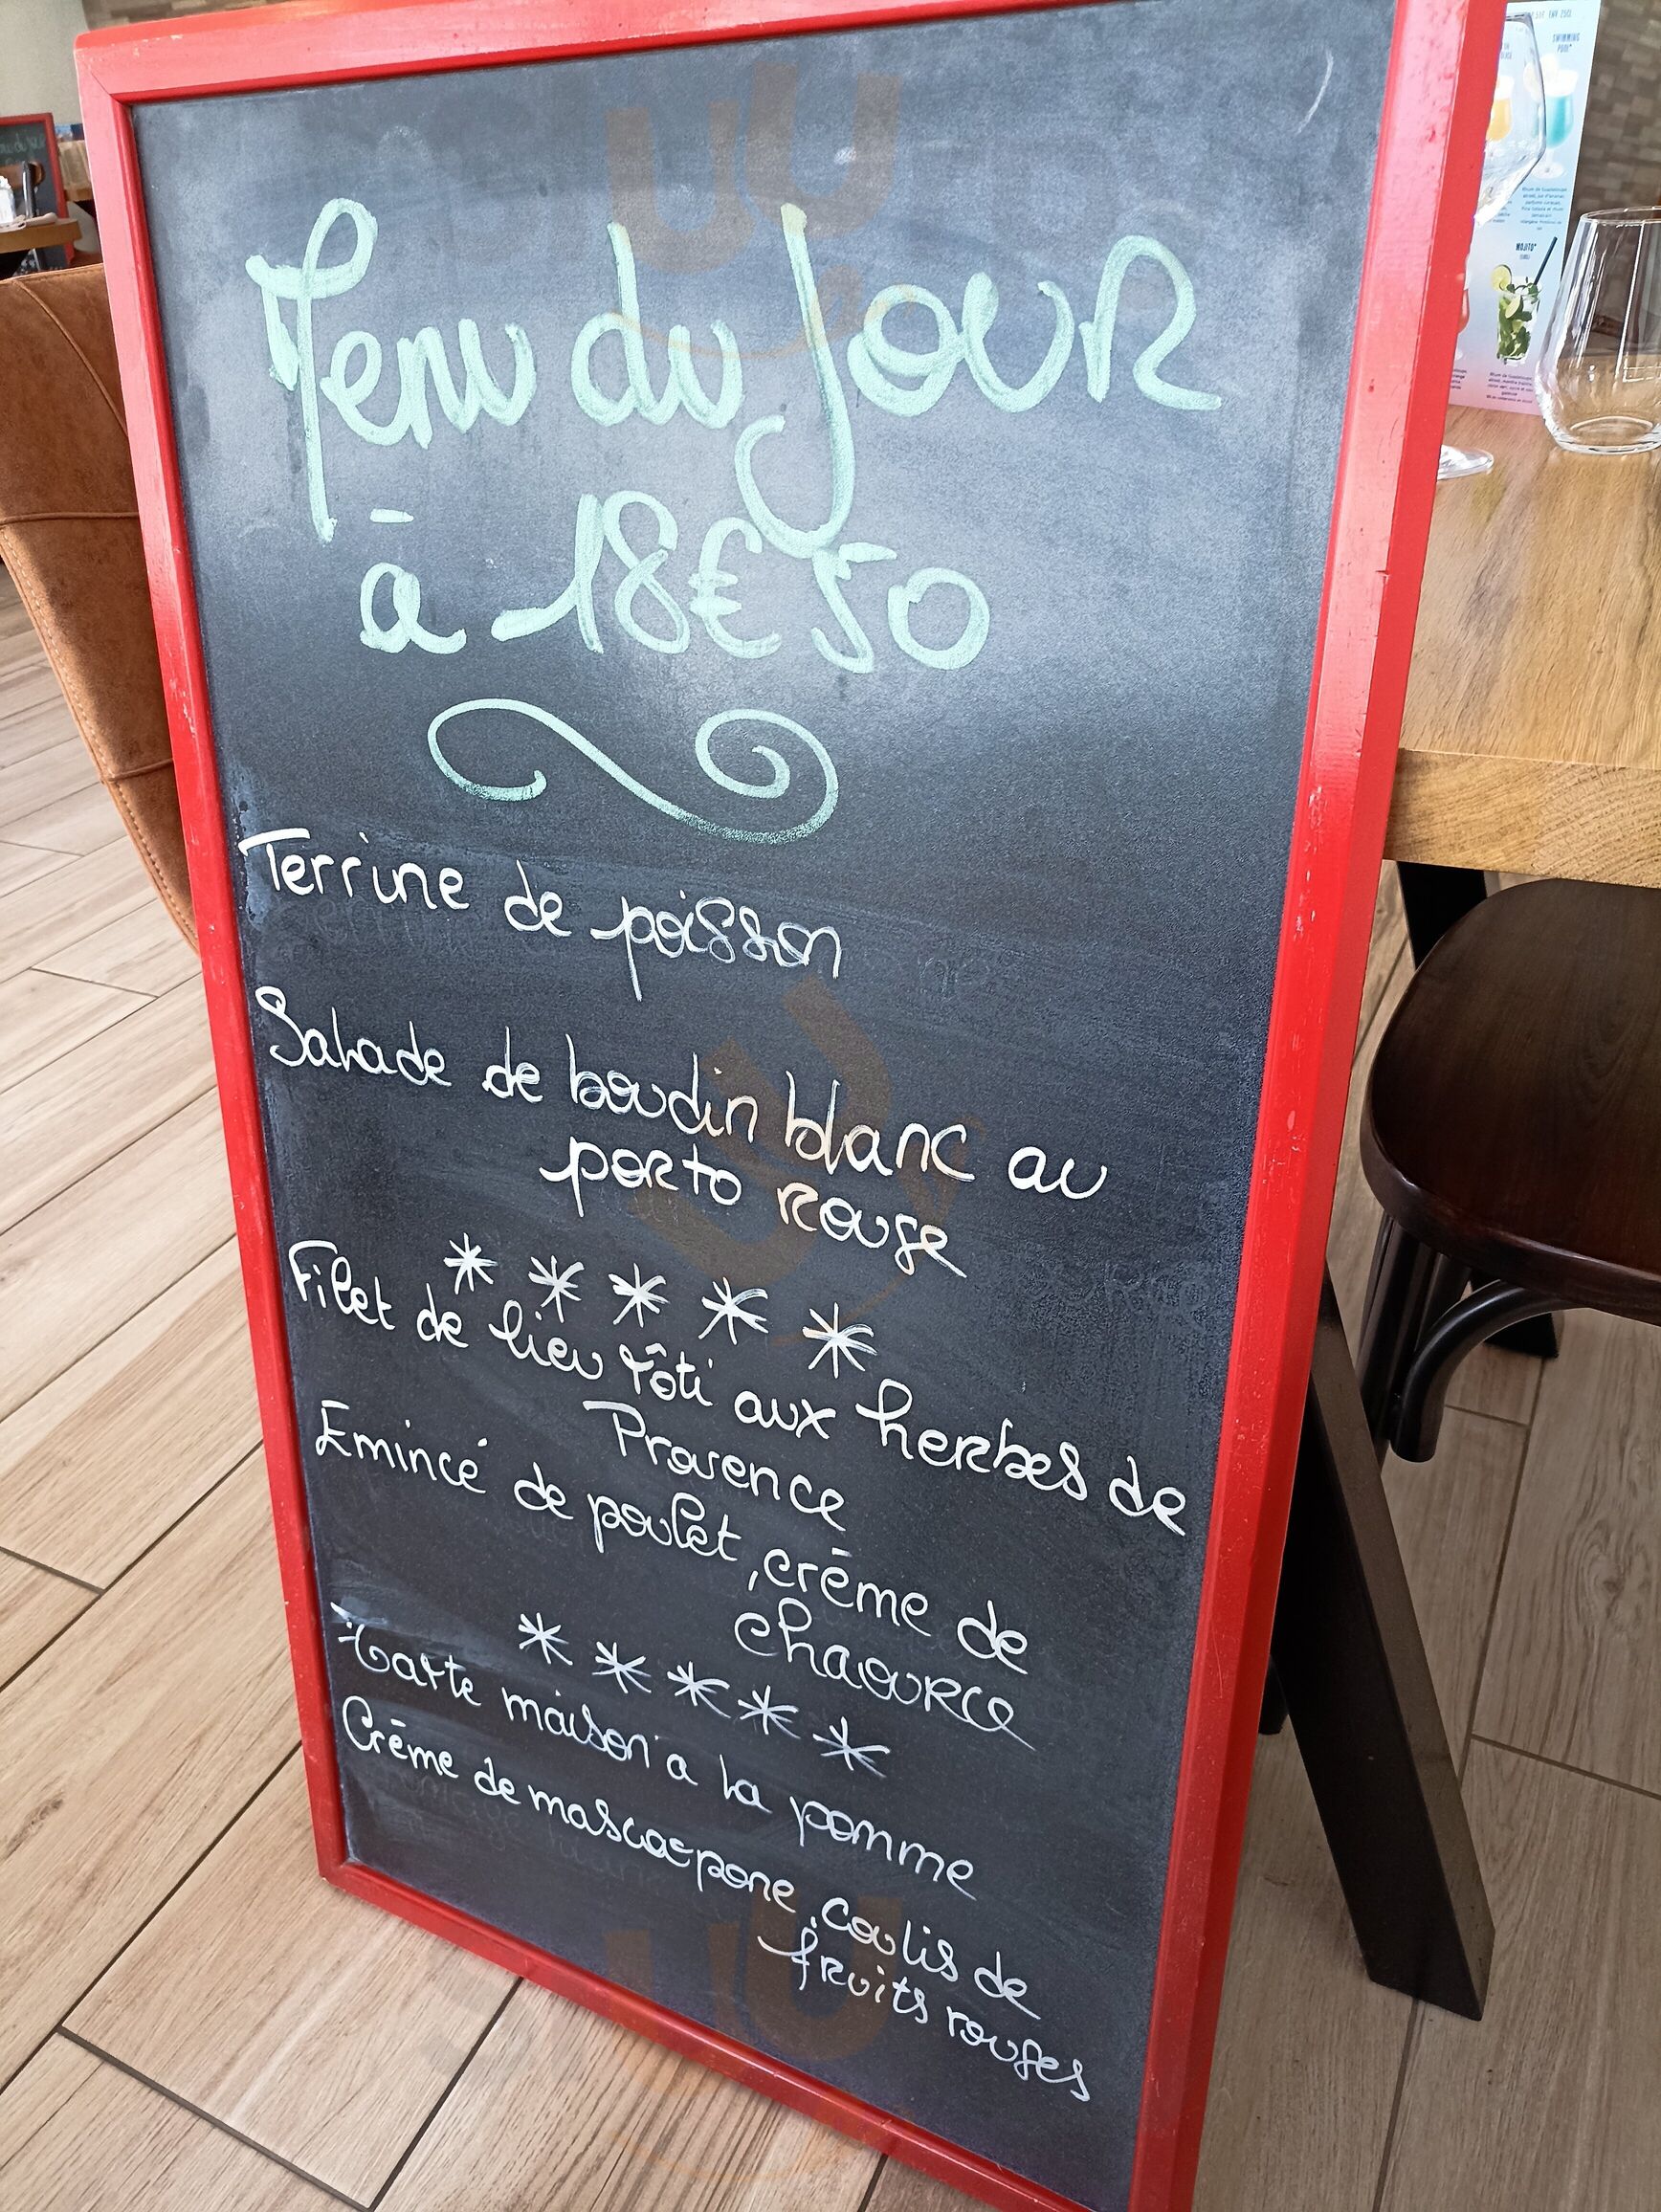 Menu du Jour
à 18€50
Terrine de poisson
Salade de boudin blanc au
porto rouge
*****
Filet de lieu rôti aux herbes de
Provence
Emincé de poulet, crème de
chaource
*****
Tarte maison a la pomme
Crème de mascarpone, coulis de
fruits rouges
SWIMMING
POOL*
MOJITO*